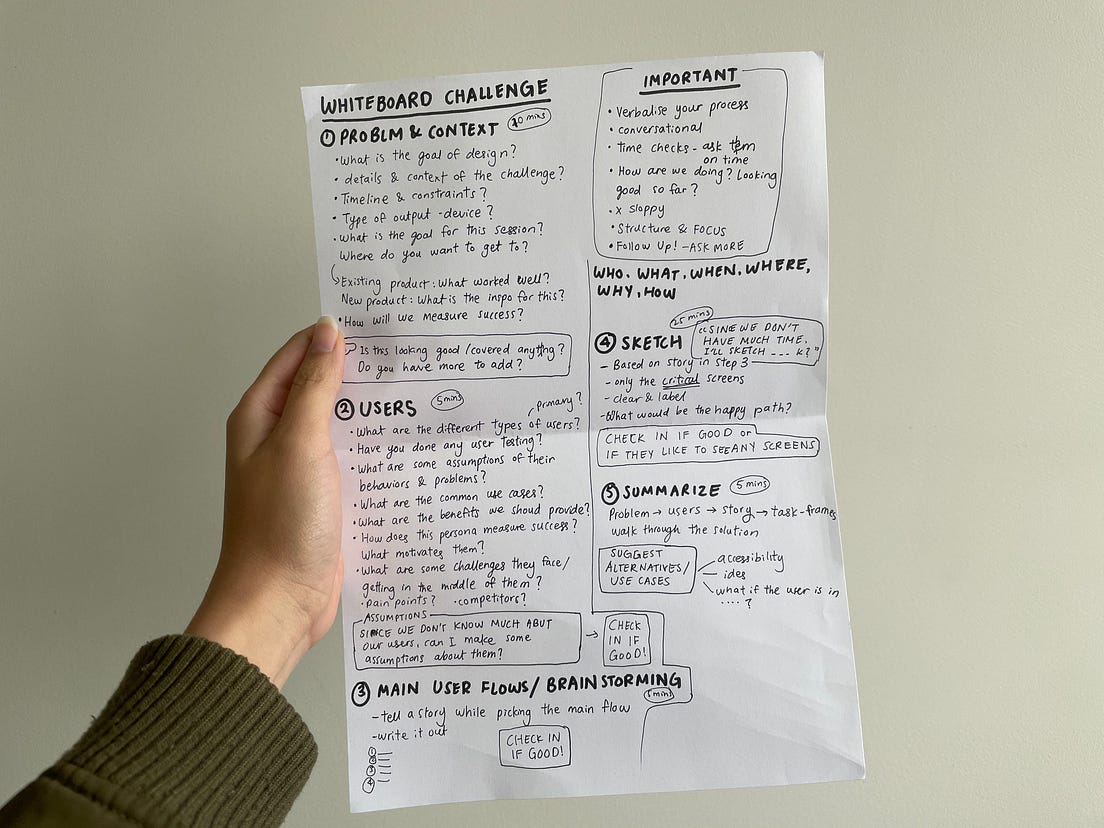 WHITEBOARD CHALLENGE
① PROBLM & CONTEXT
• What is the goal of design?
• details & context of the challenge?
• Timeline & constraints?
• Type of output - device?
• What is the goal for this session?
Where do you want to get to?
Existing product: What worked well?
New product: What is the inspo for this?
• How will we measure success?
Is this looking good / covered anything?
Do you have more to add?
② USERS 5 mins
primary?
• What are the different types of users?
• Have you done any user testing?
• What are some assumptions of their
behaviors & problems?
• What are the common use cases?
• What are the benefits we shoud provide?
• How does this persona measure success?
What motivates them?
• What are some challenges they face/
getting in the middle of them?
• pain points? • competitors?
ASSUMPTIONS
SINCE WE DON'T KNOW MUCH ABUT
our users, can I make some
assumptions about them?
→ CHECK
IN IF
GOOD!
③ MAIN USER FLOWS/ BRAINSTORMING
mins
- tell a story while picking the main flow
- write it out
CHECK IN
IF GOOD!
①
②
③
④
IMPORTANT
• Verbalise your process
• conversational
• time checks - ask them
on time
• How are we doing? Looking
good so far?
• x sloppy
• Structure & FOCUS
• Follow Up! - ASK MORE
WHO, WHAT, WHEN, WHERE,
WHY, HOW
25 mins
④ SKETCH
"SINE WE DON'T
HAVE MUCH TIME.
I'LL SKETCH _ _ _ K?"
- Based on story in Step 3
- only the critical screens
- clear & label
- What would be the happy path?
CHECK IN IF GOOD or
IF THEY LIKE TO SEE ANY SCREENS
⑤ SUMMARIZE 5 mins
Problem → users → story → task-frames
walk through the solution
SUGGEST
ALTERNATIVES/
USE CASES
accessibility
ides
what if the user is in
....?